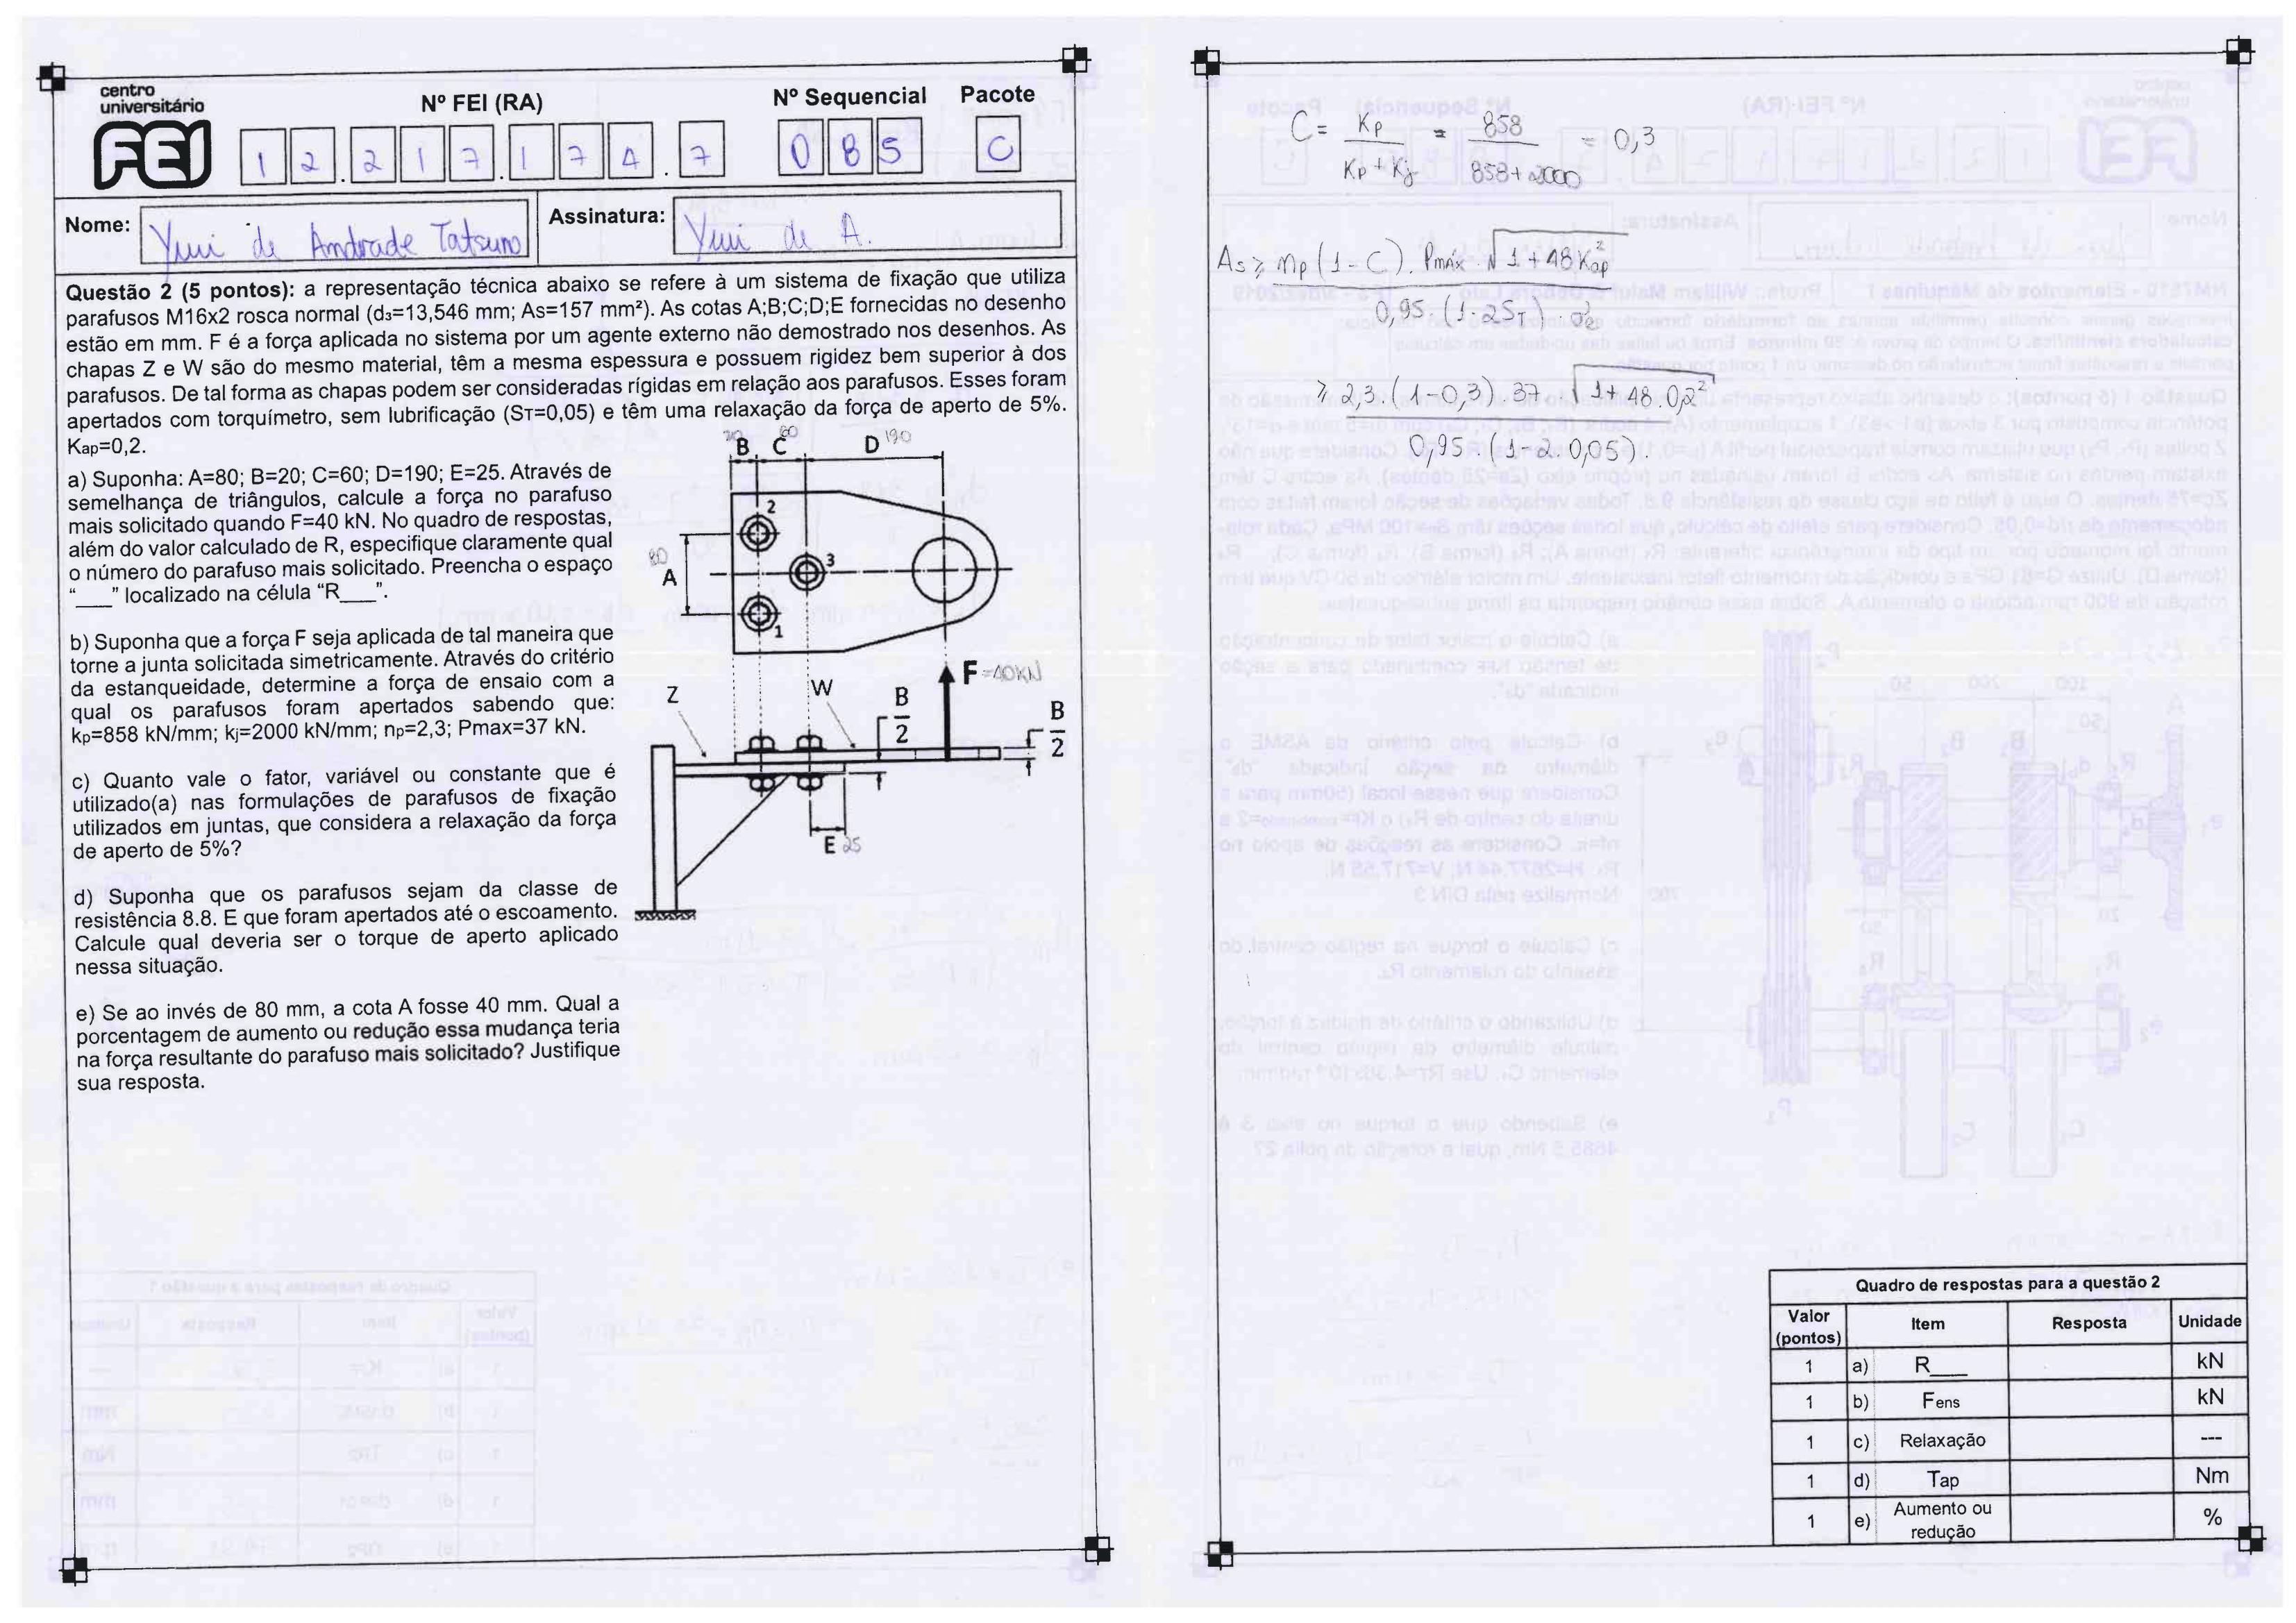 centro
universitário
FEI
Nº FEI (RA)
Nº Sequencial
Pacote
1 2 . 2 1 7 . 1 7 4 . 7
0 8 5
C
Nome: Yuri de Andrade Tatsuno
Assinatura: Yuri de A.
Questão 2 (5 pontos): a representação técnica abaixo se refere à um sistema de fixação que utiliza
parafusos M16x2 rosca normal (d₃=13,546 mm; As=157 mm²). As cotas A;B;C;D;E fornecidas no desenho
estão em mm. F é a força aplicada no sistema por um agente externo não demostrado nos desenhos. As
chapas Z e W são do mesmo material, têm a mesma espessura e possuem rigidez bem superior à dos
parafusos. De tal forma as chapas podem ser consideradas rígidas em relação aos parafusos. Esses foram
apertados com torquímetro, sem lubrificação (Sᴛ=0,05) e têm uma relaxação da força de aperto de 5%.
Kap=0,2.
a) Suponha: A=80; B=20; C=60; D=190; E=25. Através de
semelhança de triângulos, calcule a força no parafuso
mais solicitado quando F=40 kN. No quadro de respostas,
além do valor calculado de R, especifique claramente qual
o número do parafuso mais solicitado. Preencha o espaço
“___” localizado na célula “R___”.
b) Suponha que a força F seja aplicada de tal maneira que
torne a junta solicitada simetricamente. Através do critério
da estanqueidade, determine a força de ensaio com a
qual os parafusos foram apertados sabendo que:
kp=858 kN/mm; kj=2000 kN/mm; np=2,3; Pmax=37 kN.
c) Quanto vale o fator, variável ou constante que é
utilizado(a) nas formulações de parafusos de fixação
utilizados em juntas, que considera a relaxação da força
de aperto de 5%?
d) Suponha que os parafusos sejam da classe de
resistência 8.8. E que foram apertados até o escoamento.
Calcule qual deveria ser o torque de aperto aplicado
nessa situação.
e) Se ao invés de 80 mm, a cota A fosse 40 mm. Qual a
porcentagem de aumento ou redução essa mudança teria
na força resultante do parafuso mais solicitado? Justifique
sua resposta.
20 60 190
B C D
2
80
A
3
1
F =40KN
Z
W
B
2
B
2
E 25
C = Kp / (Kp + Kj) = 858 / (858+2000) = 0,3
As ≥ np (1 - C) . Pmáx . √1 + 48 Kap²
0,95 . (1 - 2ST) . σe
≥ 2,3 . (1 - 0,3) . 37 √1 + 48 . 0,2²
0,95 . (1 - 2 . 0,05) .
Quadro de respostas para a questão 2
Valor (pontos) Item Resposta Unidade
1 a) R___ kN
1 b) Fens kN
1 c) Relaxação ---
1 d) Tap Nm
1 e) Aumento ou redução %